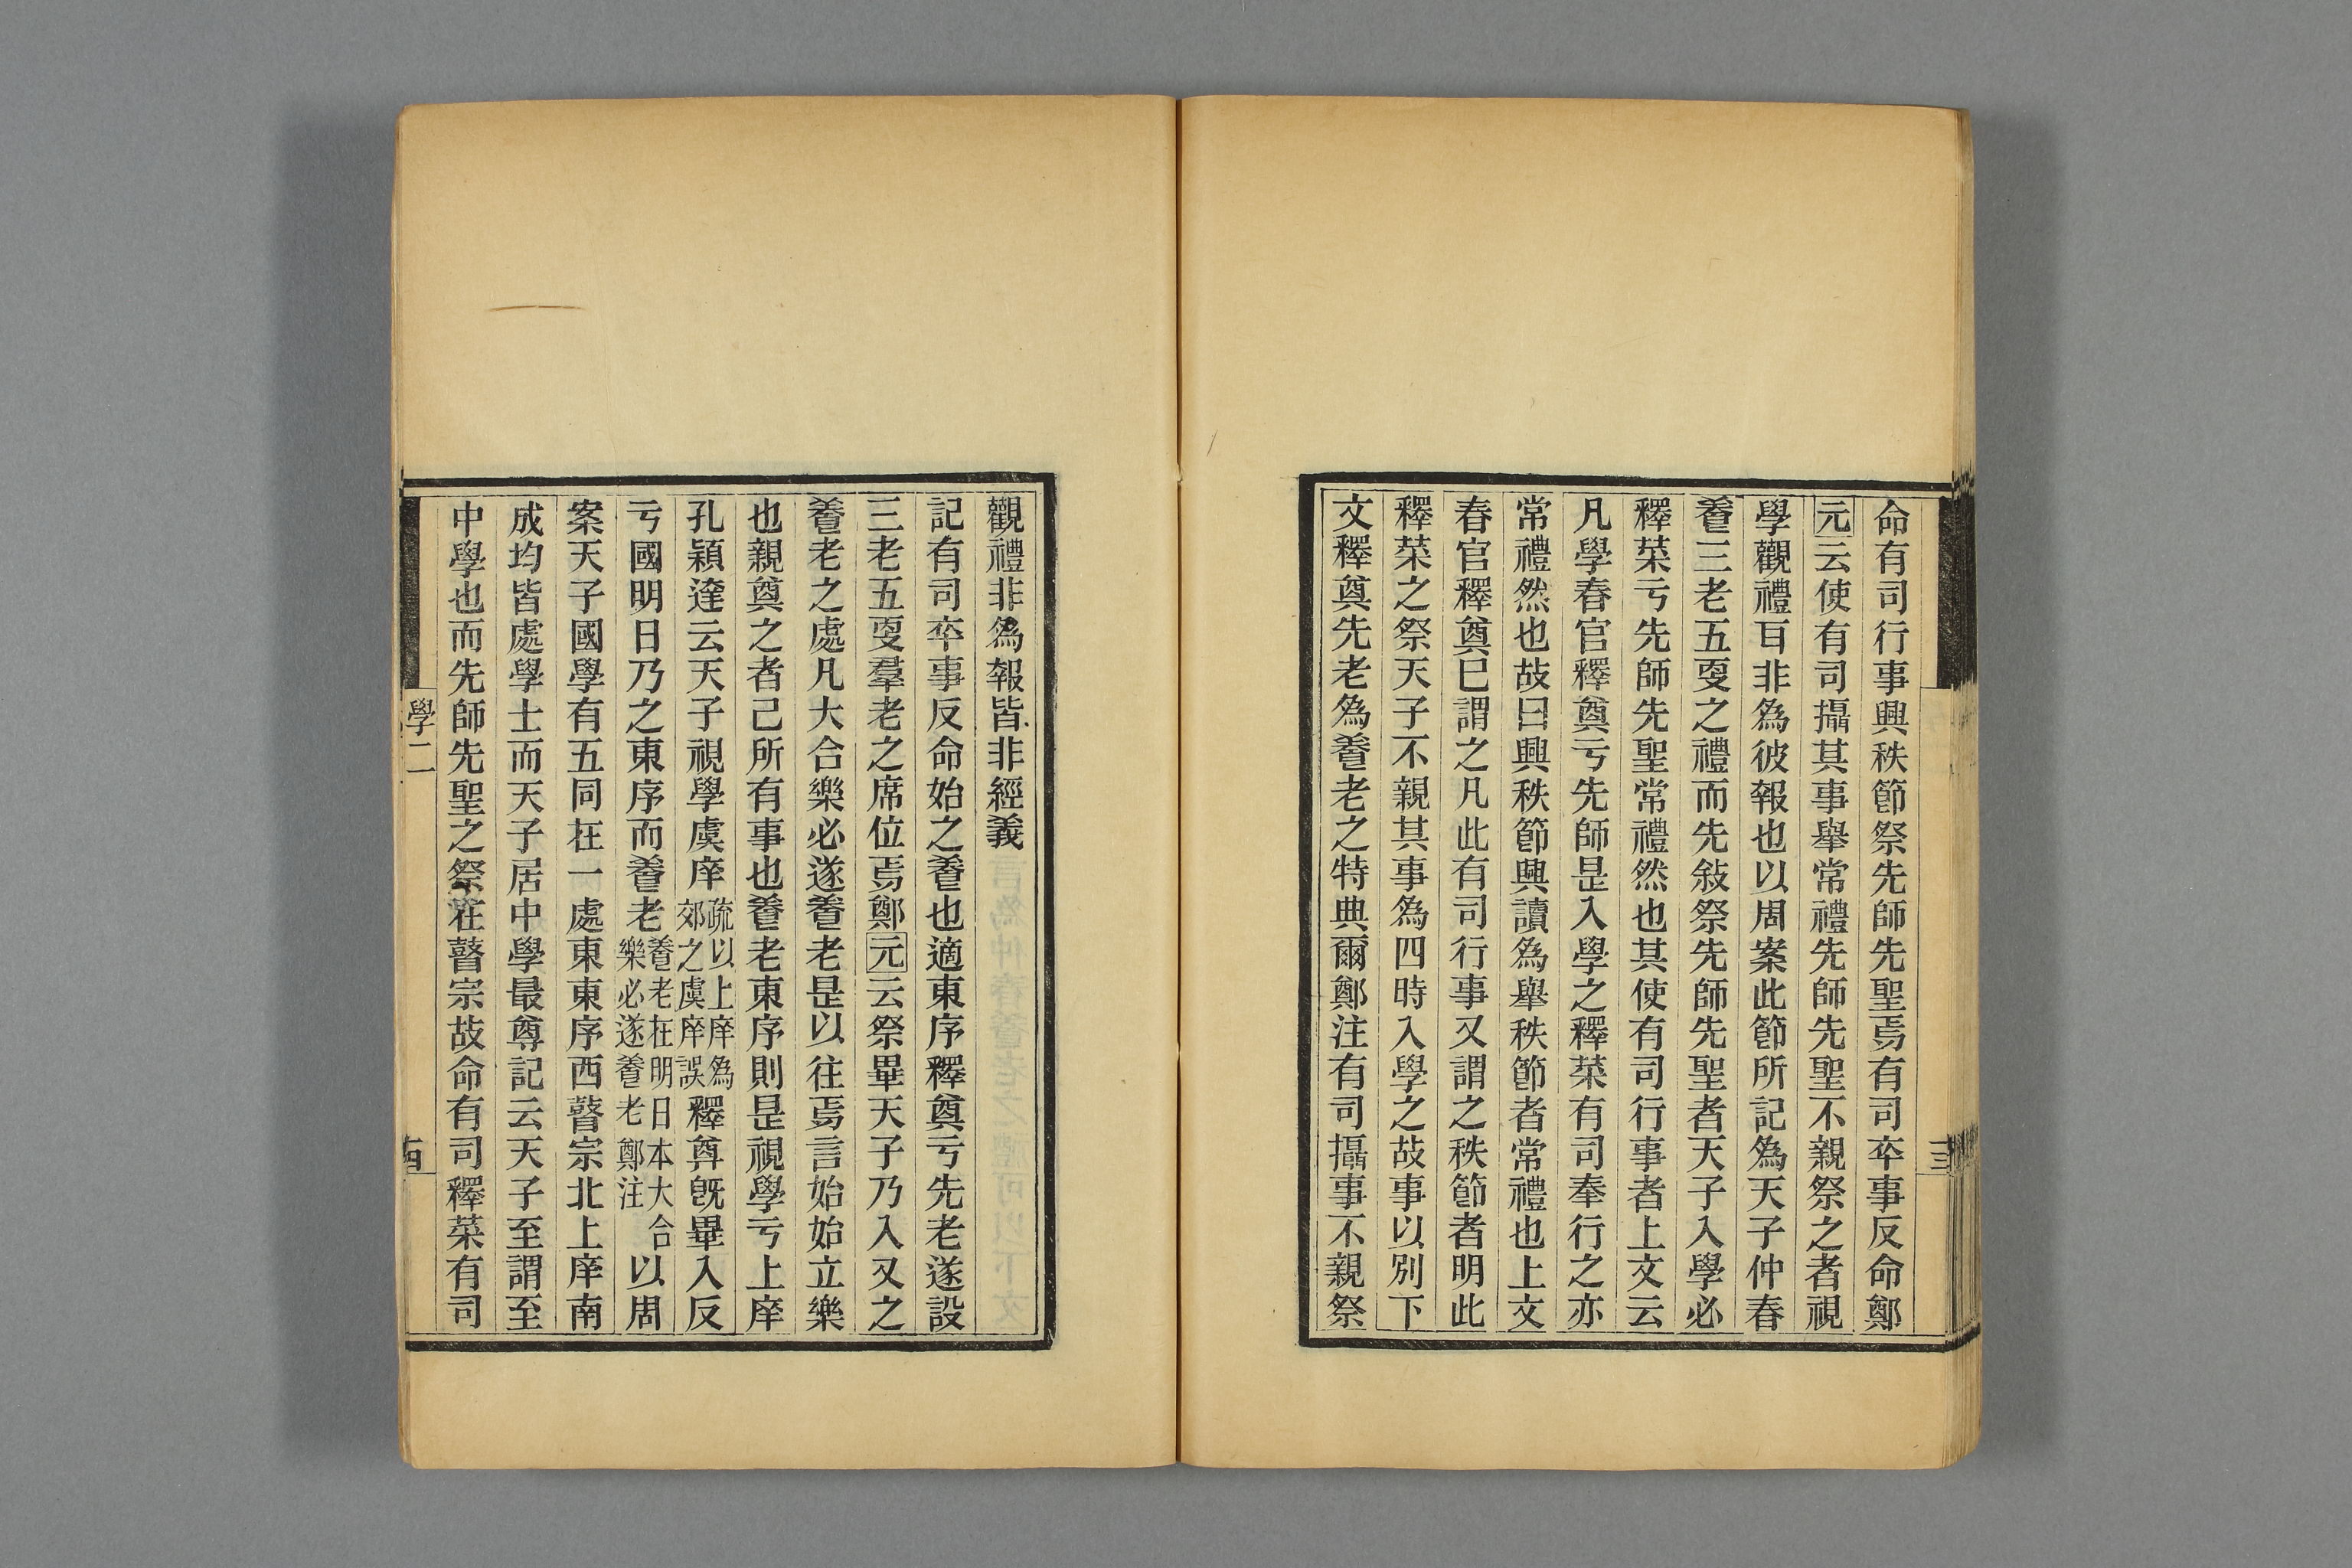 命有司行事興秩節祭先師先聖焉有司卒事反命鄭
元云使有司攝其事舉常禮先師先聖不親祭之者視
學觀禮耳非為彼報也以周案此節所記為天子仲春
養三老五更之禮而先敍祭先師先聖者天子入學必
釋菜亏先師先聖常禮然也其使有司行事者上文云
凡學春官釋奠亏先師是入學之釋菜有司奉行之亦
常禮然也故曰興秩節興讀為舉秩節者常禮也上文
春官釋奠巳謂之凡此有司行事又謂之秩節者明此
釋菜之祭天子不親其事為四時入學之故事以別下
文釋奠先老為養老之特典爾鄭注有司攝事不親祭
三
觀禮非為報皆非經義
記有司卒事反命始之養也適東序釋奠亏先老遂設
三老五更羣老之席位焉鄭元云祭畢天子乃入又之
養老之處凡大合樂必遂養老是以往焉言始始立樂
也親奠之者己所有事也養老東序則是視學亏上庠
孔穎達云天子視學虞庠疏以上庠為郊之虞庠誤釋尊旣畢入反
亏國明日乃之東序而養老養老在明日本大合樂必遂養老鄭注以周
案天子國學有五同在一處東東序西瞽宗北上庠南
成均皆處學士而天子居中學最尊記云天子至謂至
中學也而先師先聖之祭在瞽宗故命有司釋菜有司
學二
十四